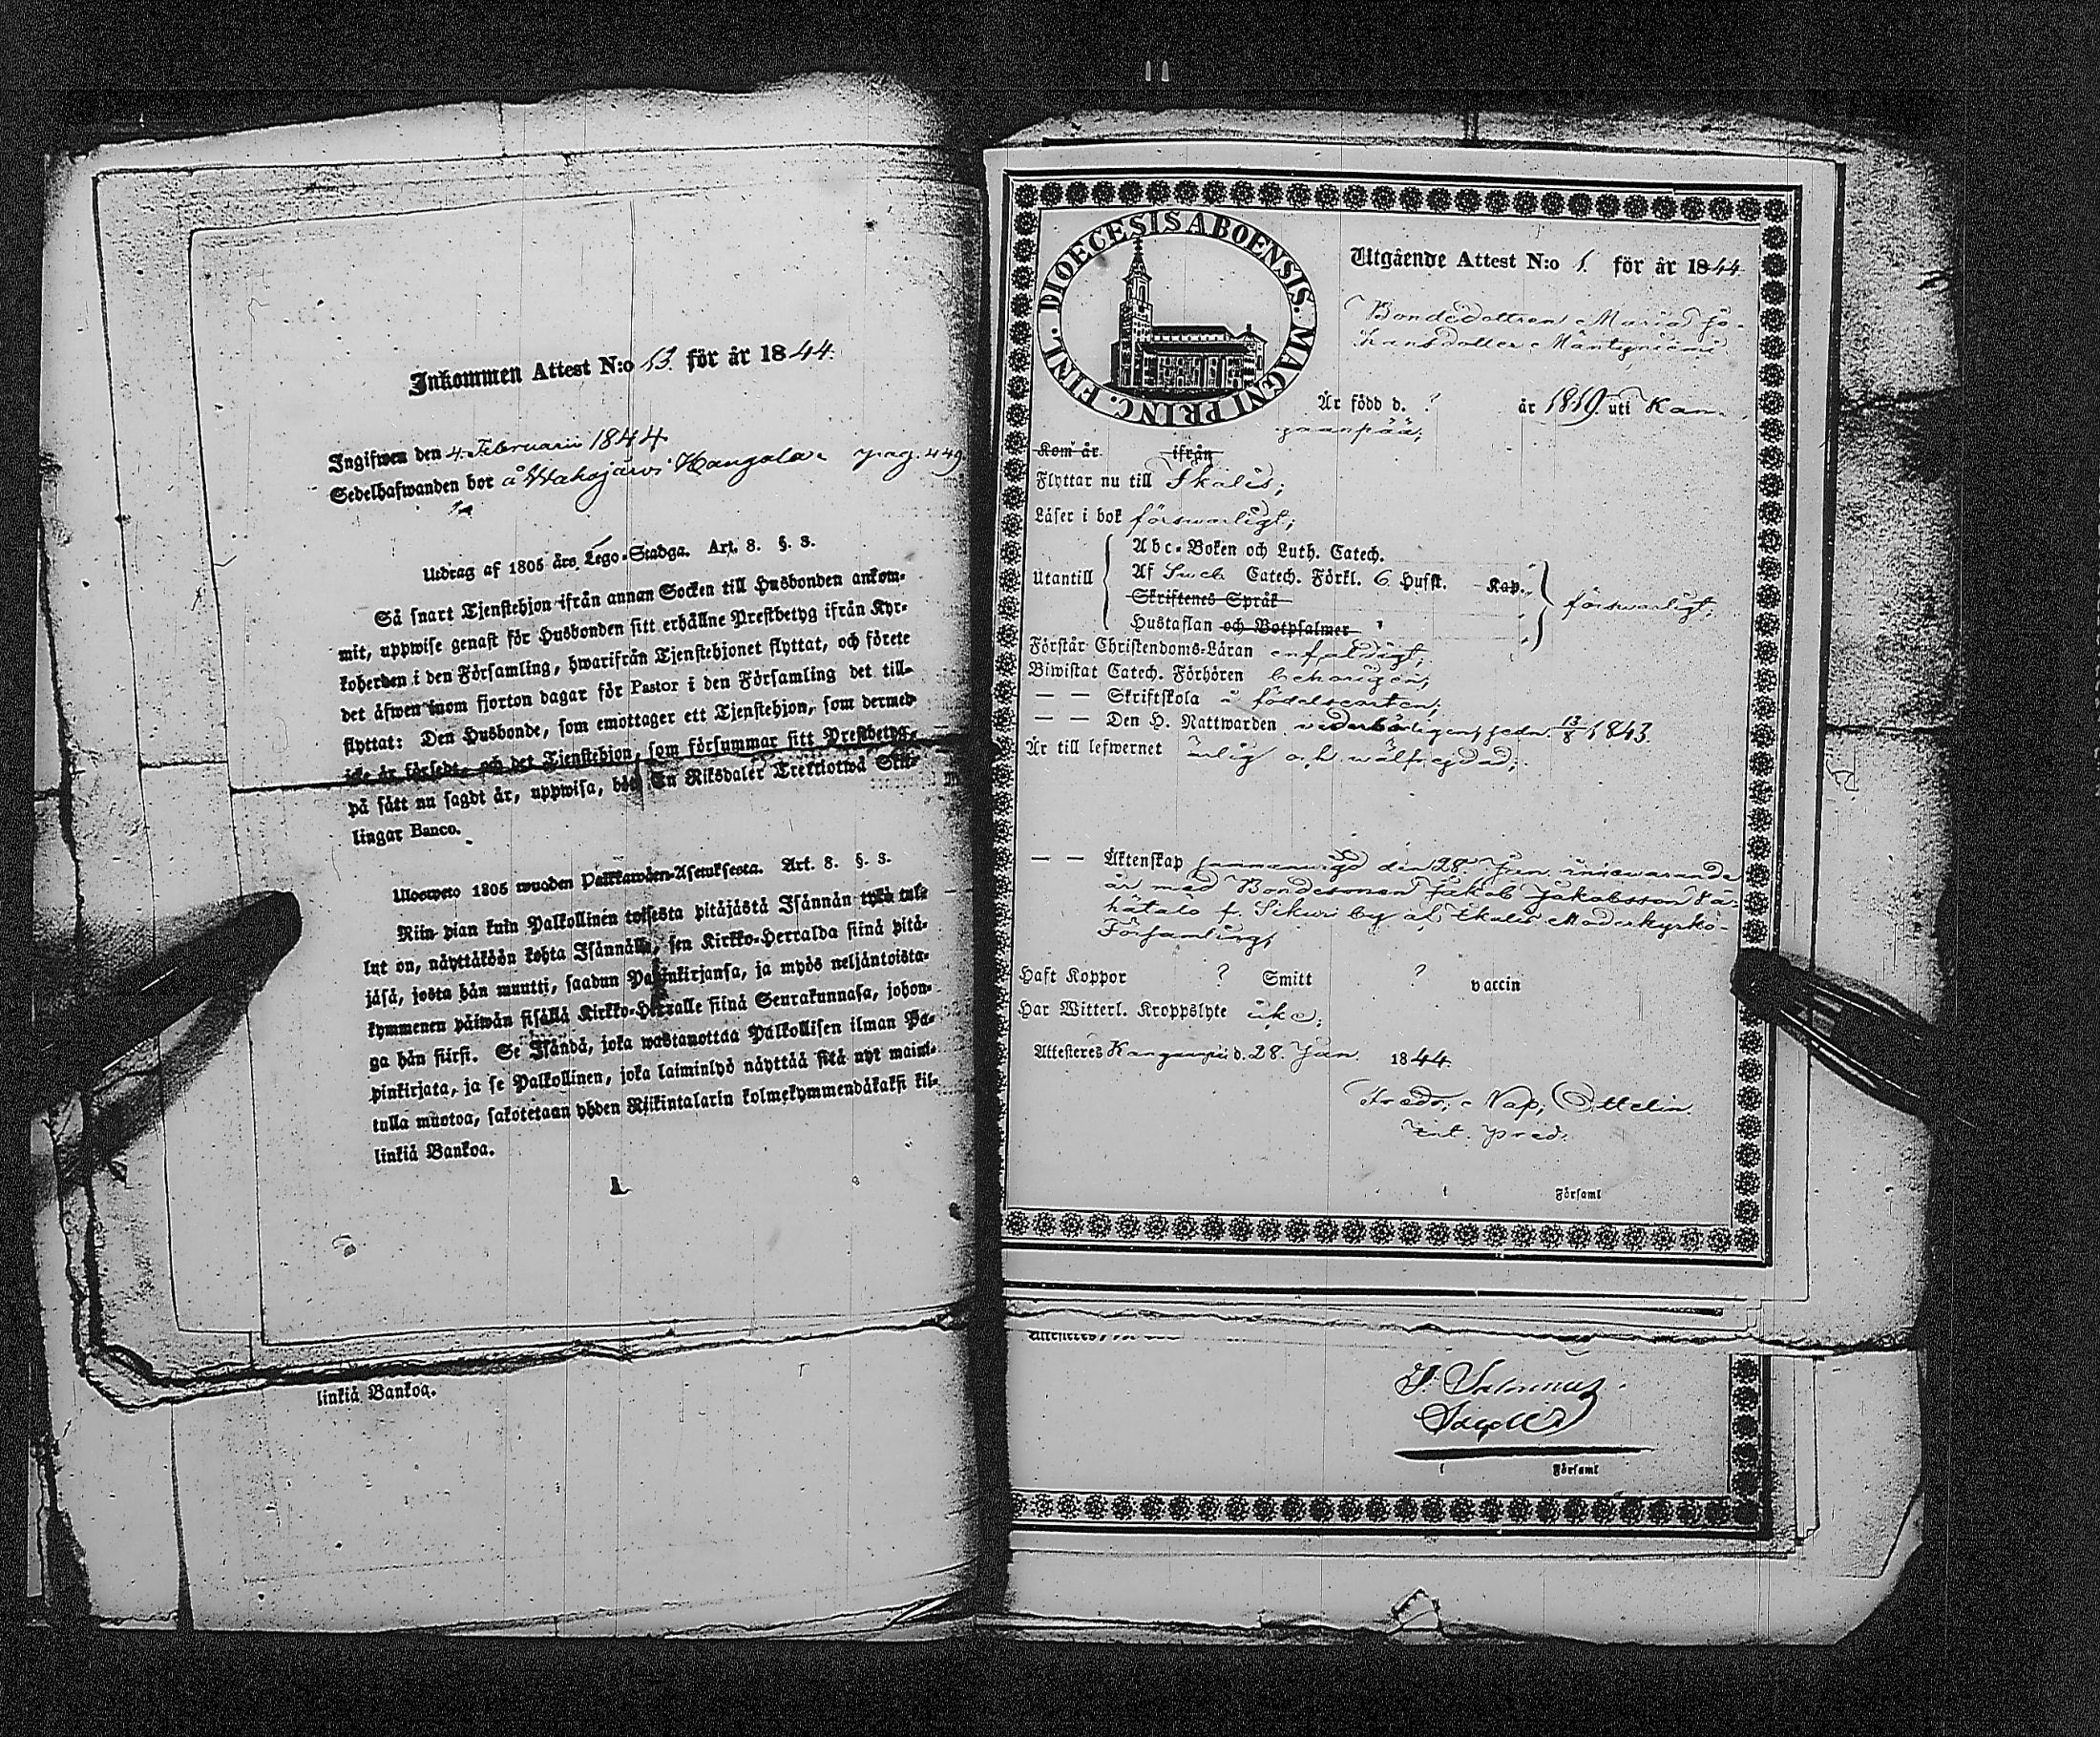 Inkommen Attest N:o 53. för år 1844.
Ingifwen den 4. Februarii 1844.
Sedelhafwanden bor å Wahojärwi Hangola pag. 449.
Utdrag af 1805 års Lego-Stadga. Art. 8. §. 3.
Så snart Tjenstehjon ifrån annan Socken till Husbonden ankom-
mit, uppwise genast för Husbonden sitt erhållne Prestbetyg ifrån Kyr-
koherden i den Församling, hwarifrån Tjenstehjonet flyttat, och förete
det äfwen inom fjorton dagar för Pastor i den Församling det till-
flyttat: Den Husbonde, som emottager ett Tjenstehjon, som dermed
icke är försedt, och det Tjenstehjon, som försummar sitt Prestbetyg,
på sätt nu sagdt är, uppwisa, böte En Riksdaler Trettiotwå Skil-
lingar Banco.
Ulosweto 1805 wuoden Palkkawäen-Asetuksesta. Art. 8. §. 3.
Niin pian kuin Palkollinen toisesta pitäjästä Isännän tykö tul-
lut on, näyttäköön kohta Isännälle, sen Kirkko-Herralda siinä pitä-
jäsä, josta hän muutti, saadun Papinkirjansa, ja myös neljäntoista-
kymmenen päiwän sisällä Kirkko-Herralle siinä Seurakunnasa, johon-
ga hän siirsi. Se Isändä, joka wastanottaa Palkollisen ilman Pa-
pinkirjata, ja se Palkollinen, joka laiminlyö näyttää sitä nyt maini-
tulla muotoa, sakotetaan yhden Riikintalarin kolmekymmendäkaksi kil-
linkiä Bankoa.
linkiä Bankoa.
DIOECESIS ABOENSIS. MAGNI PRINC. FINL.
Utgående Attest N:o 1. för år 1844
Bondedottren Maria Jo-
hansdotter Mäntyniemi
Är född d. ? år 1819 uti Kan-
gaanpää;
Kom år ifrån
Flyttar nu till Ikalis;
Läser i bok förswarligt;
Abc-Boken och Luth. Catech.
Utantill Af Sweb. Catech. Förkl. 6. Hufst. Kap. förswarligt,
Skriftenes Språk
Hustaflan och Botpsalmer
Förstår Christendoms-Läran enfaldigt;
Biwistat Catech. Förhören behörigen,
— — Skriftskola å födelseorten;
— — Den H. Nattwarden wederbörligen, sedn. 13/8 1843.
Är till lefwernet ärlig och wälfrejdad;
— — Äktenskap sammanwigd den 28. Jan. innewarande
år med Bondesonen Jakob Jakobsson Sä-
hätalo fr. Sikuri by af Ikalis Moderkyrko-
Församling;
Haft Koppor ? Smitt ? vaccin
Har Witterl. Kroppslyte icke;
Attesteres Kanganpää d. 28. Jan. 1844.
Fredr. Nap. Ottelin
i Församl
i Församl